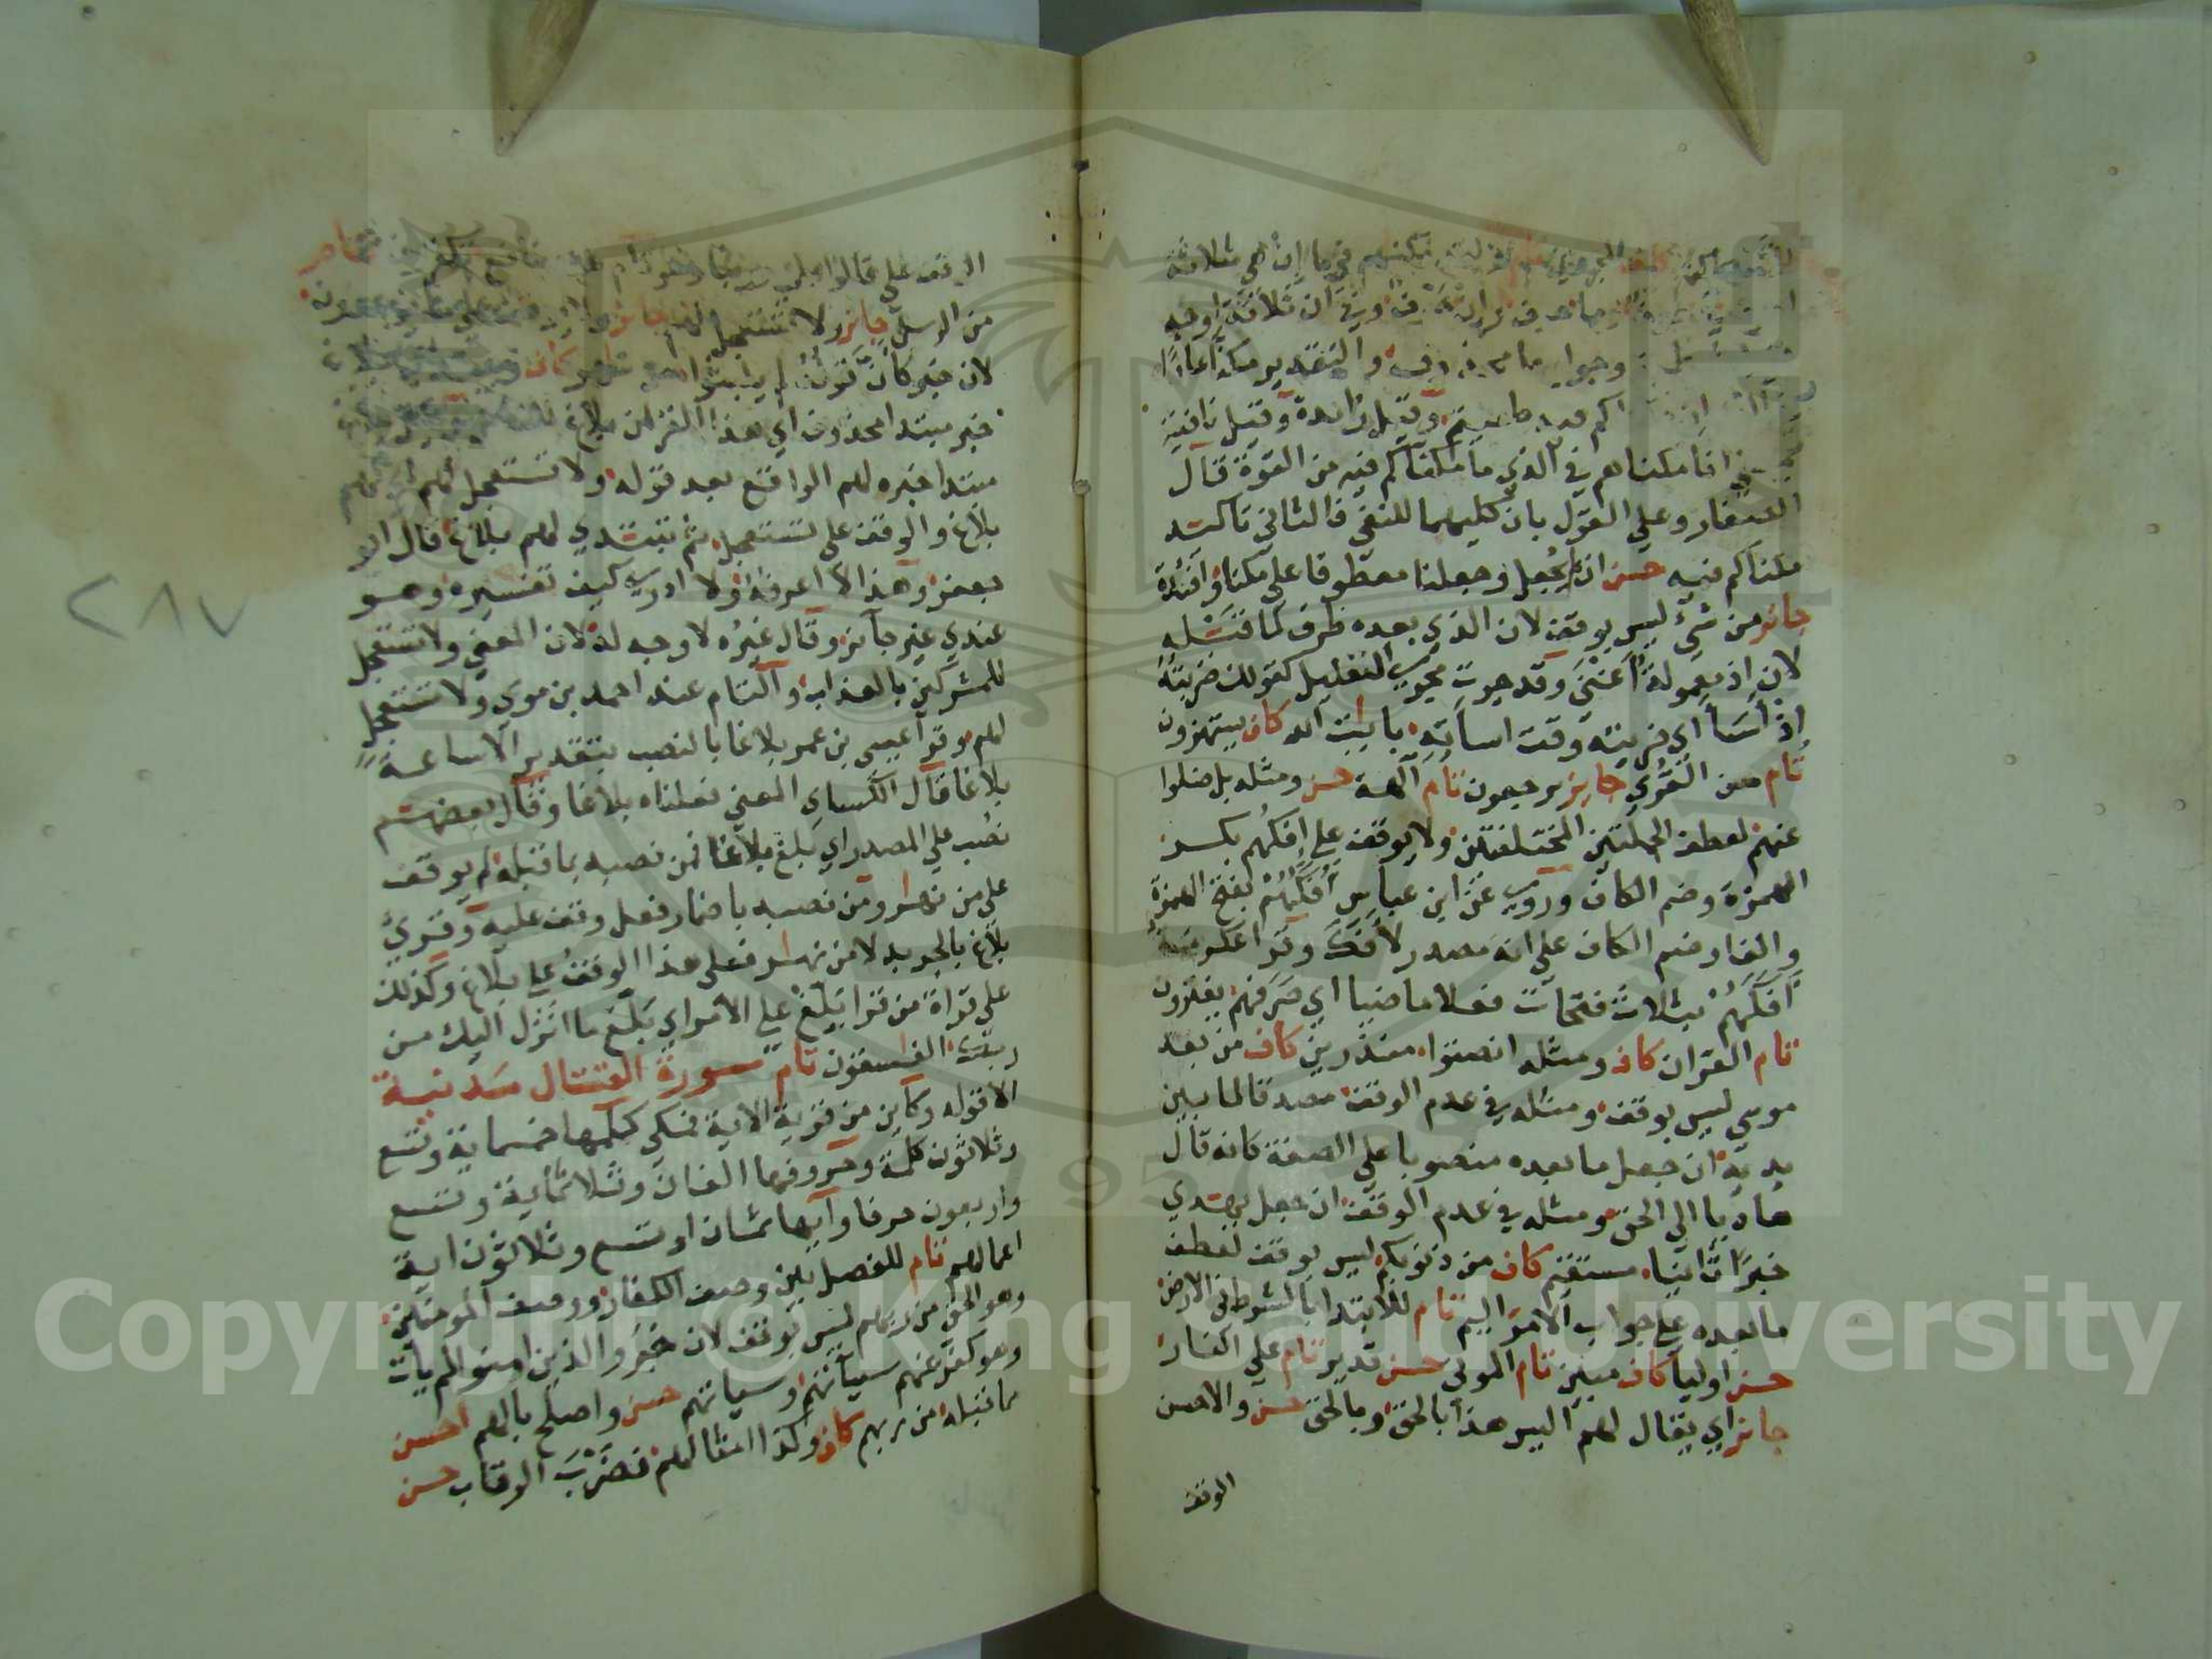 فيما إن هي ثلاثة
ان ثلاثة اوجه
وجواب ما والتقدير مكنا عادا
وقيل زائدة وقيل نافية
مكناهم في الذي ما مكناكم فيه من القوة قال
الصفار وعلي القول بان كليهما للنفي فالثاني تاكيد
مكناكم فيه حسن ان لم يجعل وجعلنا معطوفا علي مكنا وافئدة
جائز من شئ ليس بوقف لان الذي بعده ظرف لما قبله
لان اذ معمولة اغني وقد جرت مجري التعليل كقولك ضربته
اذ أسا اي ضربته وقت اساته بايات الله كاف يستهزون
تام من القري جايز يرجعون تام آلهة حسن ومثله بل ضلوا
عنهم لعطف الجملتين المختلفتين ولا يوقف علي افكهم بكسر
الهمزة وضم الكاف وروي عن ابن عباس أفكهم بفتح الهمزة
والفا وضم الكاف علي انه مصدر لأفك وقرا عكرمة
أفكهم بثلاث فتحات فعلا ماضيا اي صرفهم يفترون
تام القران كاف ومثله انصتوا منذرين كاف من بعد
موسي ليس بوقف ومثله في عدم الوقف مصدقا لما بين
يديه ان جعل ما بعده منصوبا علي الصفة كانه قال
هاديا الي الحق ومثله في عدم الوقف ان جعل يهتدي
خبرا ثانيا مستقيم كاف من ذنوبكم ليس بوقف لعطف
ما بعده علي جواب الامر اليم تام للابتدا بالشرط في الارض
حسن اوليا كاف مبين تام الموتي حسن قدير تام علي النار
جائز اي يقال لهم اليس هذا بالحق وبالحق حسن والاحسن
الوقف
الوقف علي قالوا بلي وربنا
من الرسل جائز ولا تستعجل لهم
لان خبر كان قوله لم يلبثوا
خبر مبتدا محذوف اي هذا القران بلاغ
مبتدا خبره لهم الواقع بعد قوله ولا تستعجل لهم
بلاغ والوقف علي تستعجل ثم تبتدي لهم بلاغ قال ابو
جعفر وهذا لا اعرفه ولا ادري كيف تفسيره وهو
عندي غير جائز وقال غيره لا وجه له لان المعني ولا تستعجل
للمشركين بالعذاب والتام عند احمد بن موسي ولا تستعجل
لهم وقرا عيسي بن عمر بلاغا بالنصب بتقدير الا ساعة
بلاغا قال الكساي المعني فعلناه بلاغا وقال بعضهم
نصب علي المصدر اي بلغ بلاغا فمن نصبه بما قبله لم يوقف
علي من نهار ومن نصبه باضمار فعل وقف عليه وقري
بلاغ بالجر بدلا من نهار فعلي هذا الوقف علي بلاغ وكذلك
علي قراة من قرا بلغ علي الامر اي بلغ ما انزل اليك من
ربك الفاسقون تام سورة القتال مدنية
الا قوله وكاين من قرية الاية فمكي كلمها خمسماية وتسع
وثلاثون كلمة وحروفها الفان وثلاثماية وتسع
واربعون حرفا وآيها ثمان او تسع وثلاثون اية
اعمالهم تام للفصل بين وصف الكفار ووصف المومنين
وهو الحق من ربهم ليس بوقف لان خبر والذين امنوا لم يات
وهو كفر عنهم سياتهم وسياتهم حسن واصلح بالهم احسن
مما قبله من ربهم كاف وكذا امثالهم فضرب الرقاب حسن
٢٨٧
Copyright © King Saud University
1957